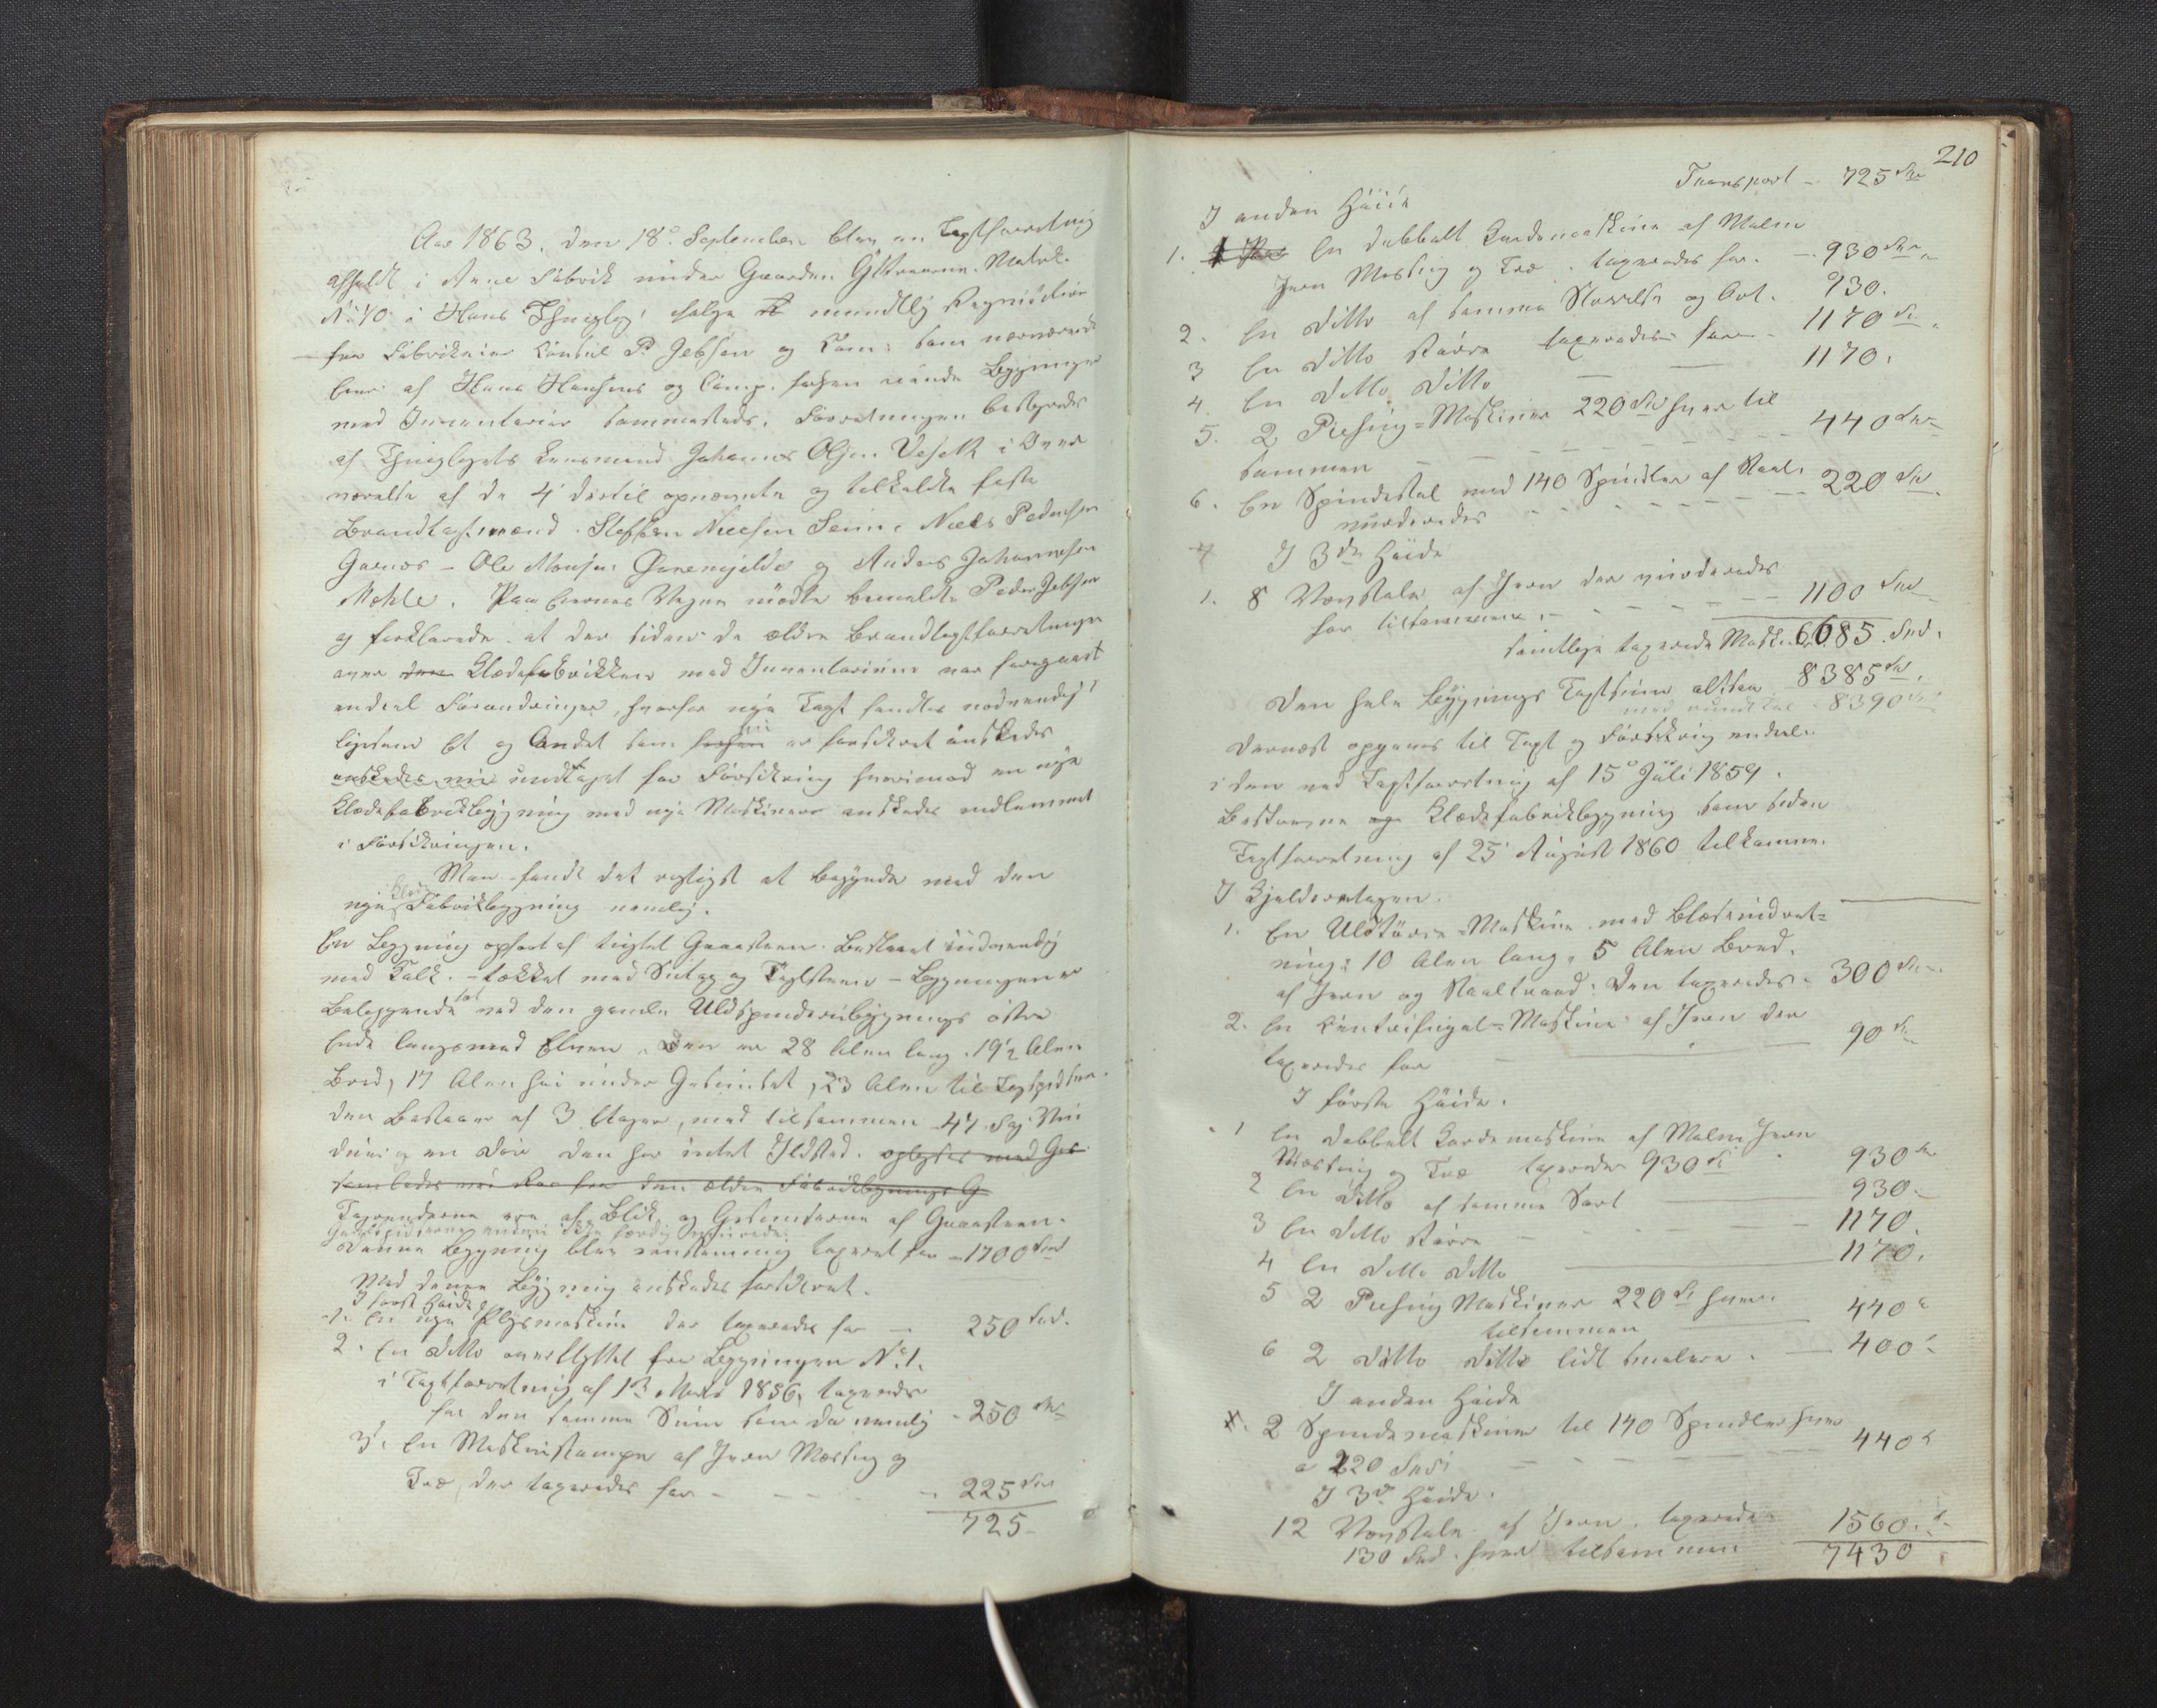 Aar 1863. den 18de September blev en Taxtforretning
afholdt i Arne Fabrik under Gaarden Gittreramn Matrik.
No 10 i Hans Thinglag' ifølge mundtlig Reqvisition
fra Fabrikeier Consul P. Jebsen og Com: som nærværende
Eier af Hans Hansens og Comp. forhen eiende Bygninger
med Inventarier sammesteds. Forretningen bestyredes
af Thinglagets Lensmand Johannes Olsen Vefalk i Over
værelse af de 4 dertil opnævnte og tilkaldte faste
Brandtaxtmænd. Steffen Nielsen Seim. Niels Pedersen
Garnæs - Ole Monsen Gremjelde og Anders Johannesen
Mæhle. Paa Eiernes Vegne mødte bemeldte Peder Jebsen
og forklarede at der siden de ældre Brandtaxtforretninger
over den Klædefabrikken med Inventarium var foregaaet
endeel Forandringer, hvorfor nye Taxt fandtes nødvendigt
ligesom Et og Andet som forhen er forsikret ønskedes
ønskedes nu undtaget for Forsikring hvorimod en nye
Klædefabrikbygning med nye Maskiner ønskedes indlemmet
i Forsikringen.
Man fandt det rigtigst at begynde med den
nye Fabrikbygning nemlig.
En Bygning opført af hugget Graasteen. Bestaaet indvendig
med Kalk. - tækket med Sutag og Taglsteen - Bygningen er
Beliggende tæt ved den gamle Uldspinderibygnings østre
Ende langsmed Elven. Den er 28 Alen lang. 19½ Alen
Bred, 17 Alen høi under Gesimset, 23 Alen til Tagspidsen.
den Bestaaer af 3 Etager, med tilsammen 47 Fag Vin
duer og en Dør den har intet Ildsted. oplyses med Gas
som ledes ved Rør fra den ældre Fabrikbygnings G
Tagrenderne ere af Blik og Gesimserne af Graasteen.
Denne Bygning blev eenstemmig taxeret for - 1700 Spd
Med denne Bygning ønskedes forsikret.
I første Høide
1. En nye Plysmaskine der taxeredes for - 250 Spd.
2. En Ditto overflyttet fra Bygningen No 1.
i Taxtforretning af 13 Marts 1856, taxeredes
for den samme Sum som da nemlig - 250 Spd
3. En Maskinstampe af Jern Messing og
Træ, der taxeredes for - - - - 225 Spd
725
210
Transport - 725 Spd
I anden Høide
1. En dobbelt Kardemaskine af Malm
Jern Messing og Træ. taxeredes for. - 930 Spd
2. En Ditto af samme Størrelse og Art. 930.
3 En Ditto større taxeredes for - 1170 Sp.
4. En Ditto Ditto - - 1170.
5. 2 Piesing-Maskiner 220 Spd hver til
sammen - - - - - - 440 Spd
6. En Spindestol med 140 Spindler af Staal.
vurderedes - - - - - - 220 Spd.
I 3die Høide
1. 8 Vævstole af Jern der vurderedes
for tilsammen - - - - - - 1100 Spd
Samtlige taxerede Maski. 6685. Spd.
Den hele Bygnings Taxtsum altsaa 8385 Spd.
med rundt Tal - 8390 Spd
Dernæst opgaves til Taxt og Forsikring endeel
i den ved Taxtforretning af 15de Juli 1859.
Beskrevne Klædefabrikbygning som siden
Taxtforretning af 25 August 1860 tilkomne.
I Kjelderetagen.
1. En Uldtørre-Maskine med Blæseindret-
ning: 10 Alen lang, 5 Alen Bred.
af Jern og Staaltraad. Den taxeredes - 300 Sp.
2. En Centrifugal-Maskine af Jern der
taxeredes for - 90 Sp
I første Høide.
1 En dobbelt Kardemaskine af Malm Jern
Messing og Træ taxeredes 930 Sp 930 Sp
2 En Ditto af samme Sort 930.
3 En Ditto større - - - - 1170.
4 En Ditto Ditto 1170.
5 2 Piesing Maskiner 220 Sp hver.
tilsammen 440
6 2 Ditto Ditto lidt smalere. - 400
I anden Høide
2 Spindemaskiner til 140 Spindler hver
a 220 Spd - - - - - - 440
I 3de Høide.
12 Vævstole af Jern. taxerede
130 Spd. hver tilsammen 1560.
7430